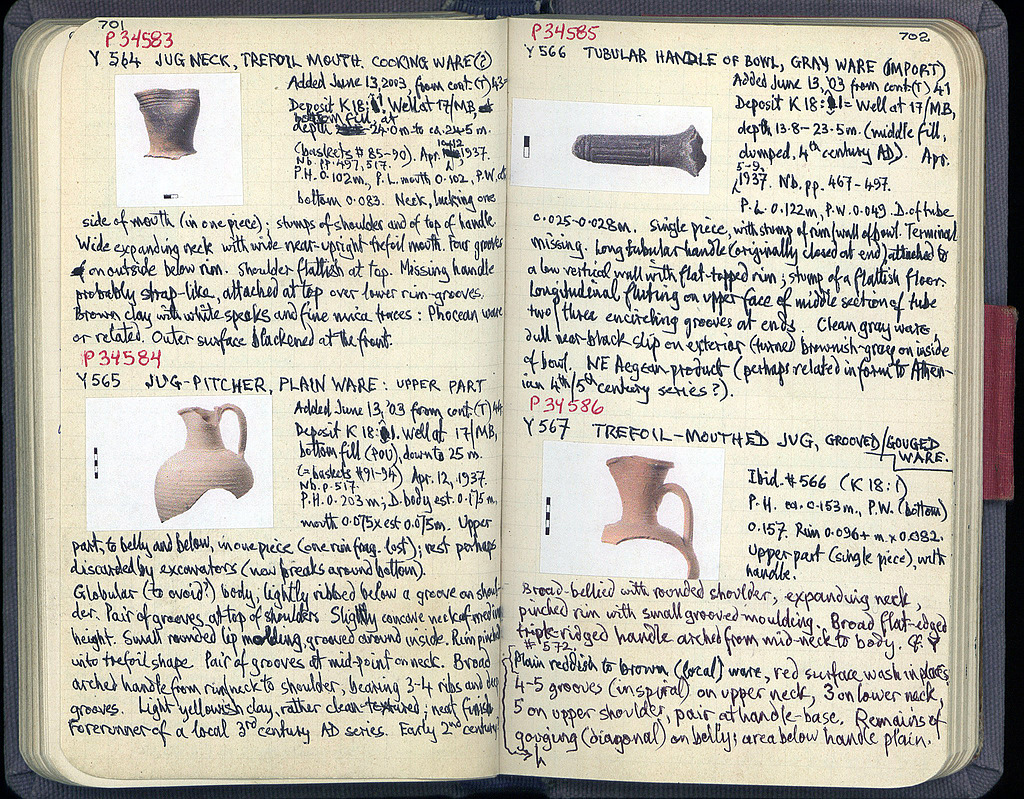 701
P34583
Y 564 JUG NECK, TREFOIL MOUTH. COOKING WARE(?)
Added June 13, 2003, from cont.(T) 43
Deposit K 18: 1. Well at 17/MB,
bottom fill, at
depth 24.0 m to ca. 24.5 m.
(baskets # 85-90). Apr. 1937.
Nb. pp. 497, 517.
P.H. 0.102m., P.L. mouth 0.102, P.W. at
bottom 0.083. Neck, lacking one
side of mouth (in one piece); stumps of shoulder and of top of handle.
Wide expanding neck with wide near-upright trefoil mouth. Four grooves
on outside below rim. Shoulder flattish at top. Missing handle
probably strap-like, attached at top over lower rim-grooves.
Brown clay with white specks and fine mica traces: Phocean ware
or related. Outer surface blackened at the front.
P34584
Y 565 JUG-PITCHER, PLAIN WARE: UPPER PART
Added June 13, '03 from cont.(T) 44
Deposit K 18: 1. Well at 17/MB,
bottom fill (POU), down to 25 m.
(= baskets #91-94) Apr. 12, 1937.
Nb. p. 517.
P.H. 0.203 m, D. body est. 0.175m,
mouth 0.075x est 0.075m. Upper
part, to belly and below, in one piece (one rim frag. lost); rest perhaps
discarded by excavators (new breaks around bottom).
Globular (to ovoid?) body, lightly ribbed below a groove on shoul-
der. Pair of grooves at top of shoulders. Slightly concave neck of medium
height. Small rounded lip molding, grooved around inside. Rim pinched
into trefoil shape. Pair of grooves at mid-point on neck. Broad
arched handle from rim/neck to shoulder, bearing 3-4 ribs and deep
grooves. Light yellowish clay, rather clean-textured; neat finish
Forerunner of a local 3rd century AD series. Early 2nd century
702
P34585
Y 566 TUBULAR HANDLE OF BOWL, GRAY WARE (IMPORT)
Added June 13, '03 from cont.(T) 41
Deposit K 18: 1 = Well at 17/MB,
depth 13.8-23.5m (middle fill,
dumped, 4th century AD). Apr.
5-9,
1937. Nb. pp. 467-497.
P.L. 0.122m, P.W. 0.049. D. of tube
0.025-0.028m. Single piece, with stump of rim/wall of bowl. Terminal
missing. Long tubular handle (originally closed at end) attached to
a low vertical wall with flat-topped rim; stump of a flattish floor.
Longitudinal fluting on upper face of middle section of tube
two/three encircling grooves at ends. Clean gray ware,
dull near-black slip on exterior (turned brownish-gray on inside
of bowl. NE Aegean product (perhaps related in form to Athen-
ian 4th/5th century series?).
P34586
Y 567 TREFOIL-MOUTHED JUG, GROOVED/GOUGED
WARE.
Ibid. #566 (K 18:1)
P.H. ca. 0.153m., P.W. (bottom)
0.157. Rim 0.096+ m x 0.082.
Upper part (single piece), with
handle.
Broad-bellied with rounded shoulder, expanding neck,
pinched rim with small grooved moulding. Broad flat-edged
triple-ridged handle arched from mid-neck to body. Cf. Y
#572.
Plain reddish to brown (local) ware, red surface wash in places,
4-5 grooves (in spiral) on upper neck, 3 on lower neck,
5 on upper shoulder, pair at handle-base. Remains of
gouging (diagonal) on belly; area below handle plain.